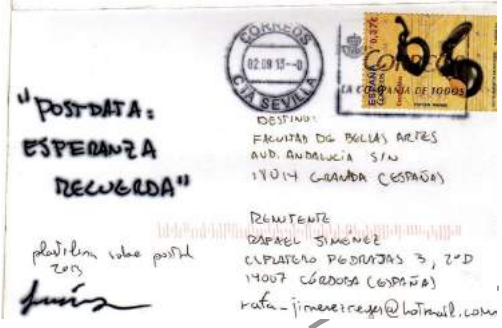 CORREOS
02.09 13
CTA SEVILLA
ESPAÑA
CORREOS
0,37€
CORREOS
LA COMPAÑIA DE TODOS
"POSTDATA:
ESPERANZA
RECUERDA"
plastilina sobre postal
2013
DESTINO:
FACULTAD DE BELLAS ARTES
AVD. ANDALUCÍA S/N
18014 GRANADA (ESPAÑA)
REMITENTE
RAFAEL JIMÉNEZ
C/PLATERO PEDRAJAS 3, 2ºD
14007 CÓRDOBA (ESPAÑA)
rafa_jimenezreyes@hotmail.com